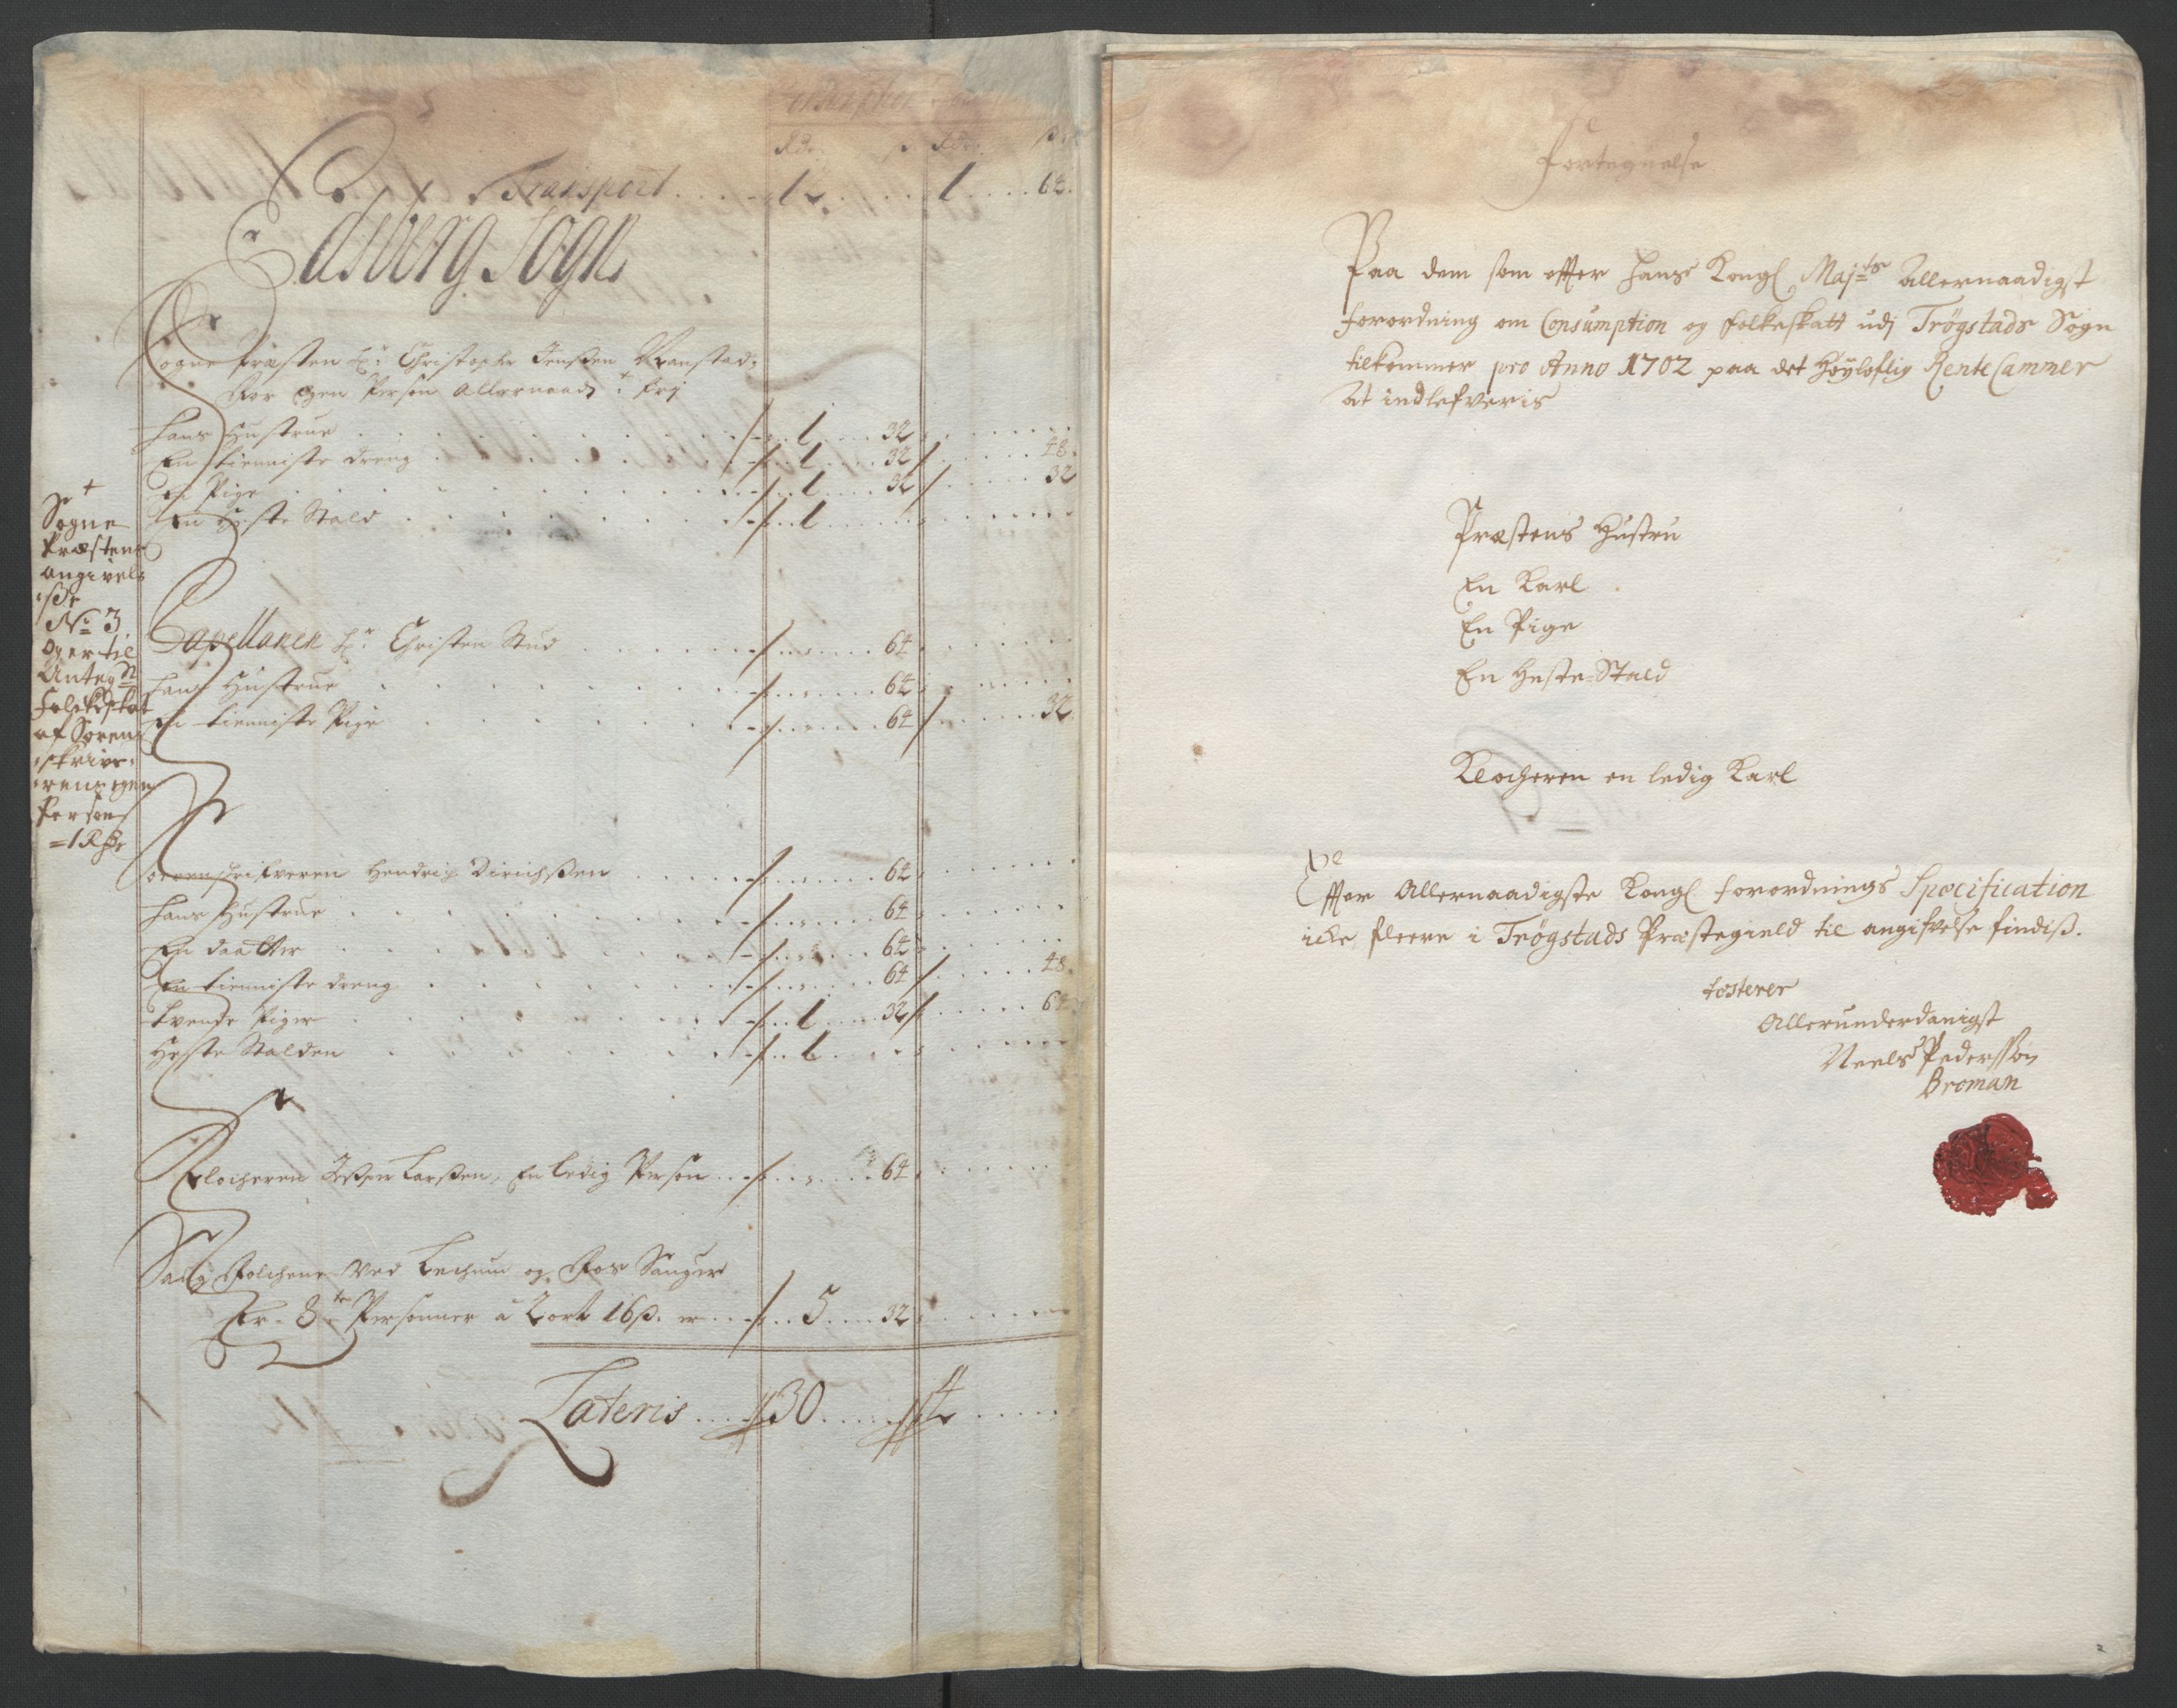 Consumption
Rdr. ß. Rdr. ß.
Transport . . . 12 . . . . 1 . . . 64.
Edsberg Sogn
Sogne Præsten Hr. Christopher Jenßen Vranstad.
For Egen Person Allernaad. + frj
Hans Hustrue . . . 1 . . . 32
En tienniste dreng . . . 1 . . . 32 . . . 48.
En Pige . . . 1 . . . 32 . . . 32
En Heste Stald . . . 1
+
Sogne
Præstens
angivel-
se
No. 3
Og er til
Antegn
Folkeskat
af Soren-
skriv-
erens egen
Person
= 1 Rdr
Capellanen Hr. Christen Stud . . . 64
Hans Hustrue . . . 64
En tienniste Pige . . . 64 . . . 32.
Sorenschrifveren Hendrich Dirichßen . . . 64
Hans Hustrue . . . 64
En daatter . . . 64
En tienniste dreng . . . 64 . . . 48.
Tvende Piger . . . 1 . . . 32 . . . 64.
Heste Stalden . . . 1
Klocheren Jesper Larßen, En ledig Person . . . 64
Saug Folchene Ved Lechum og Fos Sauger
Er 8te Personner à 2 ort 16 ß. er . . . 5 . . . 32
Lateris . . . 30 . . . 4
Fortegnelse
Paa dem som effter Hans Kongl Majts Allernaadigst
forordning om Consumption og folkeskatt udj Trøgstads Sogn
tilkommer pro Anno 1702 paa det Høyloflig RenteCammer
At indlefveris
Præstens Hustru
En Karl
En Pige
En Heste-Stald
Klocheren en ledig Karl
Effter Allernaadigste Kongl forordnings Specification
icke fleere i Trøgstads Præstegield til angifvelse findiß.
testerer
Allerunderdanigst
Neels Pederssøn
Broman